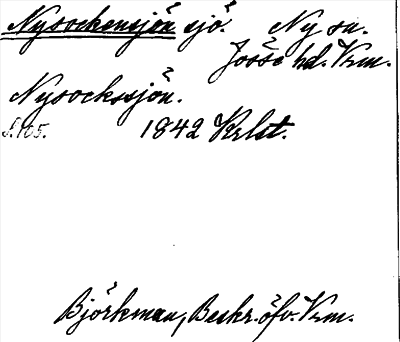 Nysockensjön sjö. Ny sn.
Jösse hd. Vrm.
Nysockssjön.
S. 105. 1842 Krlst.
Björkman, Beskr. öfv. Vrm.